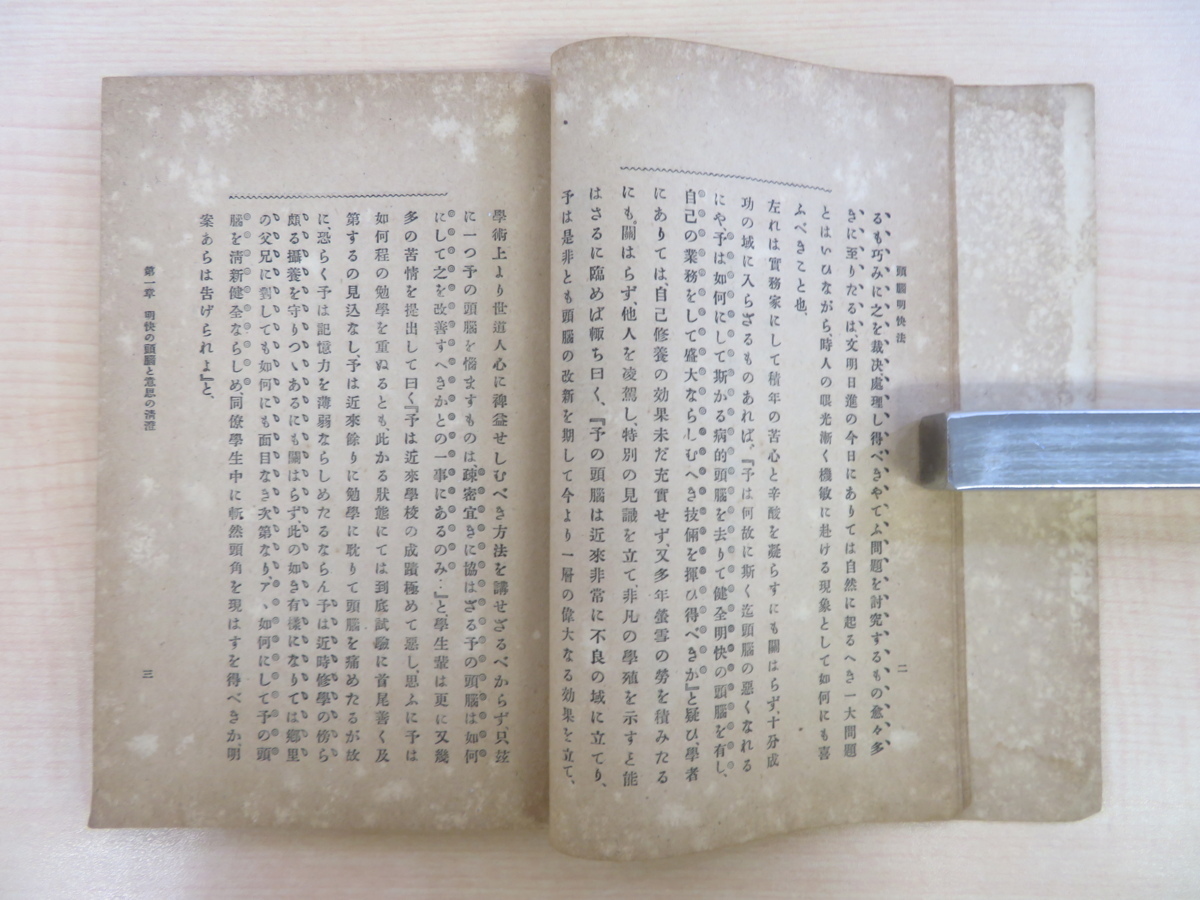 頭腦明快法
二
るも巧みに之を裁决處理し得べきやてふ問題を討究するもの愈々多
きに至りたるは文明日進の今日にありては自然に起るへき一大問題
とはいひながら、時人の眼光漸く機敏に赴ける現象として如何にも喜
ふべきこと也、
左れは實務家にして積年の苦心と辛酸を凝らすにも關はらず、十分成
功の域に入らざるものあれば、『予は何故に斯く迄頭腦の惡くなれる
にや、予は如何にして斯かる病的頭腦を去りて健全明快の頭腦を有し、
自己の業務をして盛大ならしむへき技倆を揮ひ得べきか』と疑ひ學者
にありては、自己修養の効果未だ充實せず、又多年螢雪の勞を積みたる
にも關はらず、他人を凌駕し、特別の見識を立て、非凡の學殖を示すと能
はさるに臨めば輙ち曰く、『予の頭腦は近來非常に不良の域に立てり、
予は是非とも頭腦の改新を期して今より一層の偉大なる効果を立て、
學術上より世道人心に裨益せしむべき方法を講せざるべからず、只茲
に一つ予の頭腦を惱ますものは疎密宜きに協はざる予の頭腦は如何
にして之を改善すへきかとの一事にあるのみ…』と學生輩は更に又幾
多の苦情を提出して曰く『予は近來學校の成蹟極めて惡し、思ふに予は
如何程の勉學を重ぬるとも、此かる狀態にては到底試驗に首尾善く及
第するの見込なし、予は近來餘りに勉學に耽りて頭腦を痛めたるが故
に、恐らく予は記憶力を薄弱ならしめたるならん予は近時修學の傍ら
頗る攝養を守りつゝあるにも關はらず、此の如き有樣になりては鄕里
の父兄に對しても如何にも面目なき次第なり、ァヽ如何にして予の頭
腦を淸新健全ならしめ、同僚學生中に斬然頭角を現はすを得べきか、明
案あらは告げられよ』と、
第一章　明快の頭腦と意思の淸澄
三